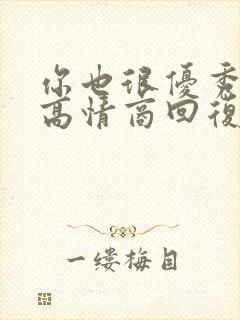 你也很優秀
高情商回復
一缕梅目